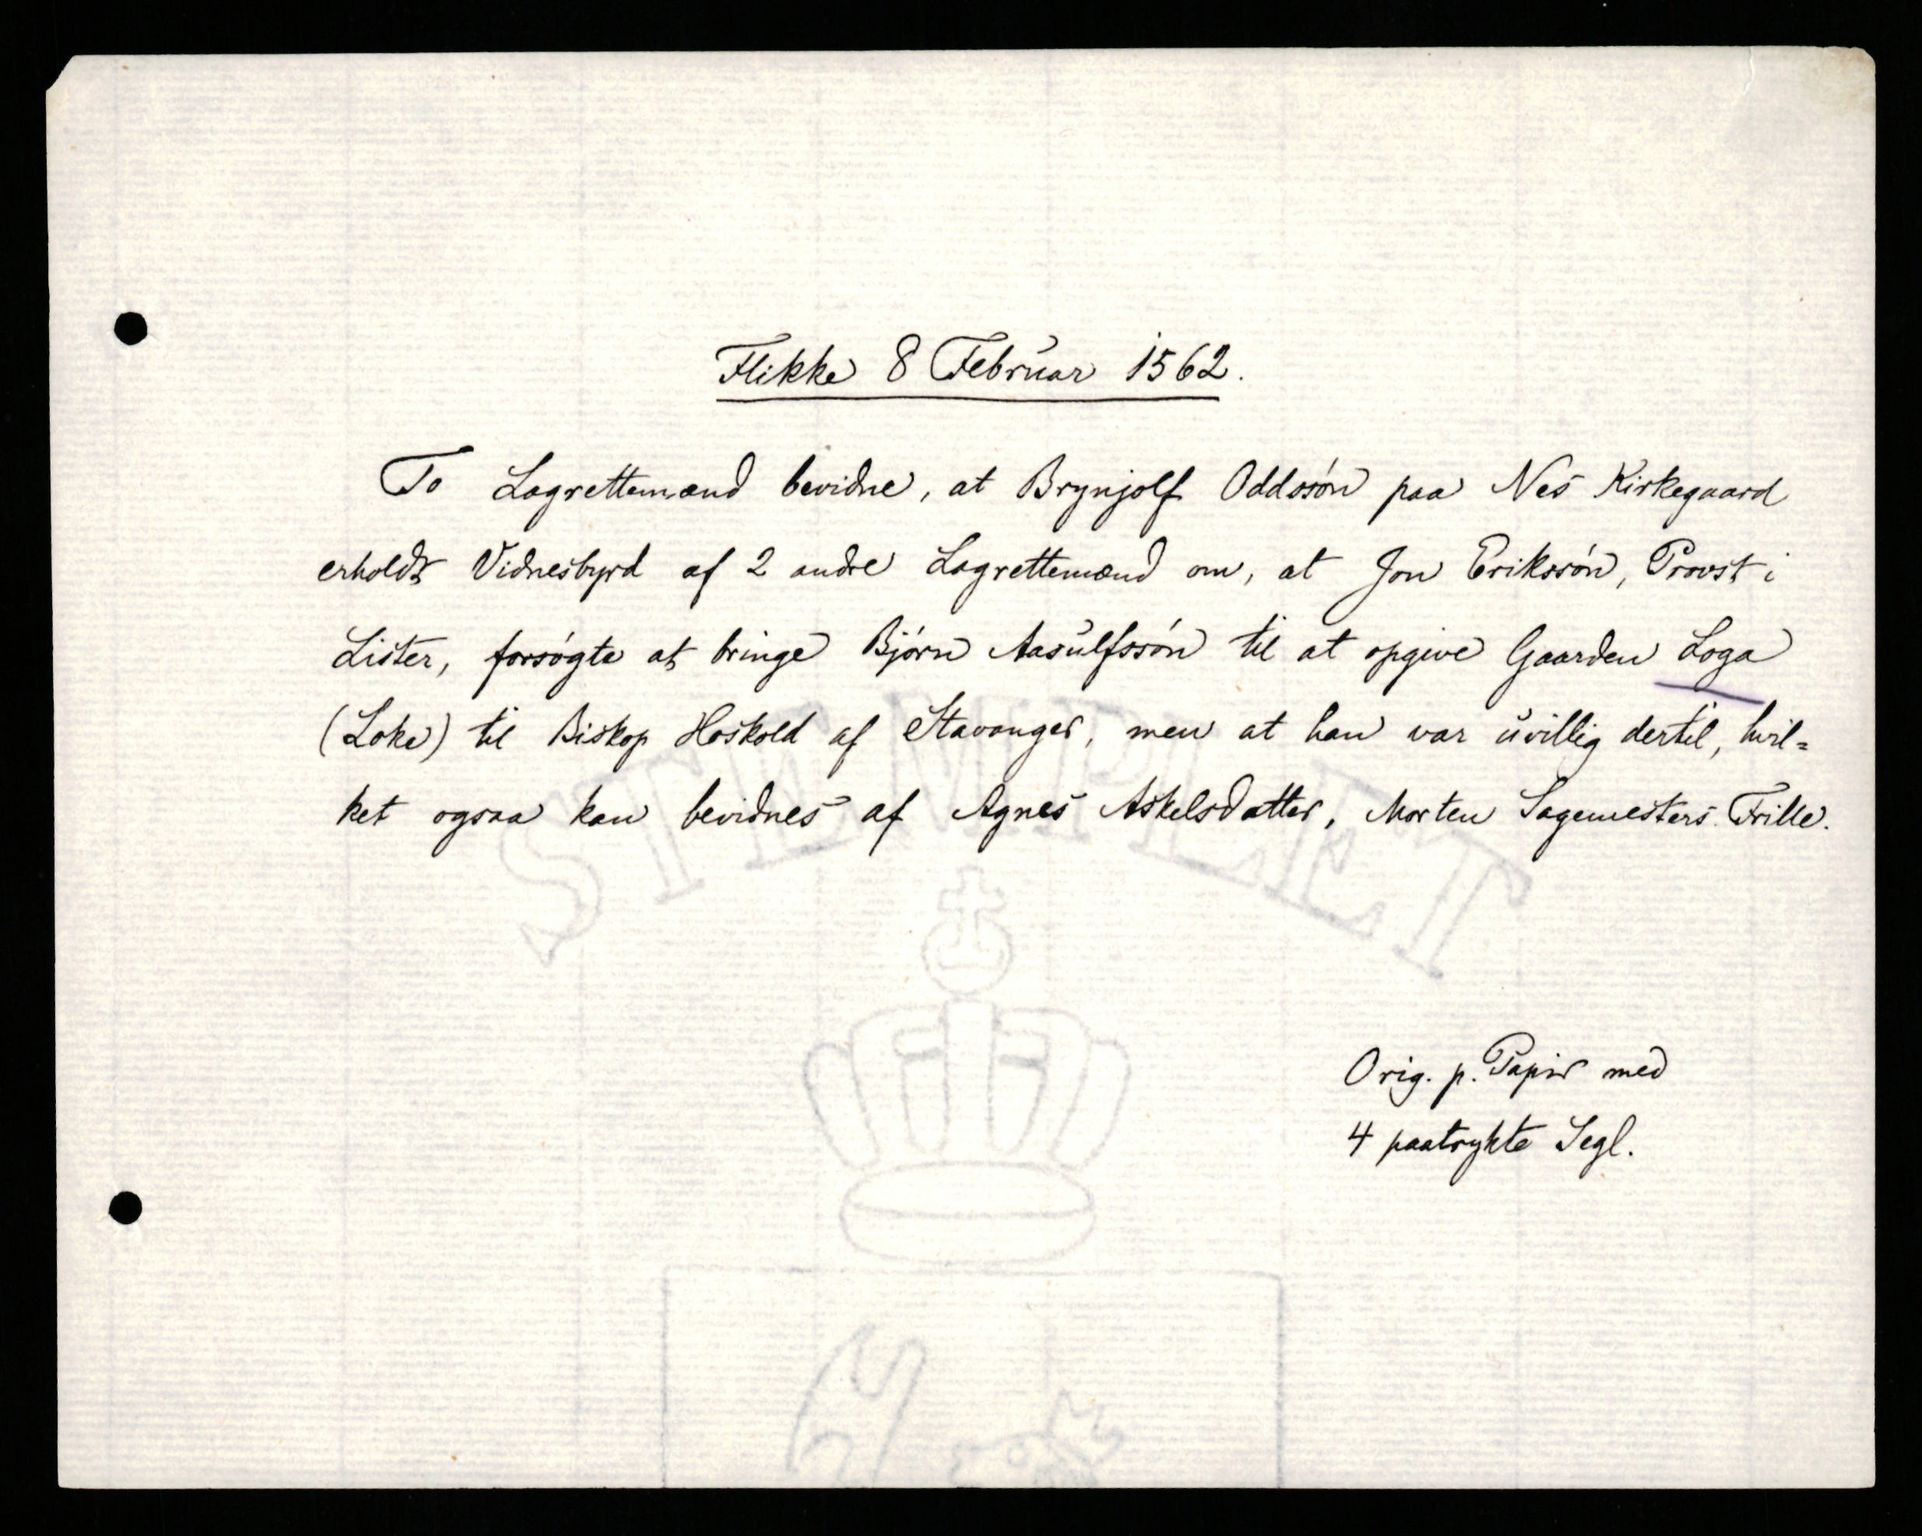 Flikke 8 Februar 1562.
To Lagrettemænd bevidne, at Brynjolf Oddssón paa Nes Kirkegaard
erholdt Vidnesbyrd af 2 andre Lagrettemænd om, at Jon Erikssón, Provst i
Lister, forsøgte at bringe Bjórn Aasulfssón til at opgive Gaarden Loga
(Loke) til Biskop Hoskold af Stavanger, men at han var uvillig dertil, hvil=
ket ogsaa kan bevidnes af Agnes Askelsdatter, Morten Sagemesters Frille.
STEMPLET
Orig. p. Papir med
4 paatrykte Segl.